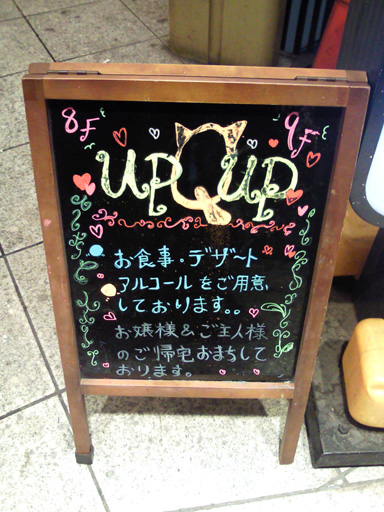 8F 9F
UP Q UP
お食事・デザート
アルコールをご用意
しております。。
お嬢様&ご主人様
のご帰宅おまちして
おります。